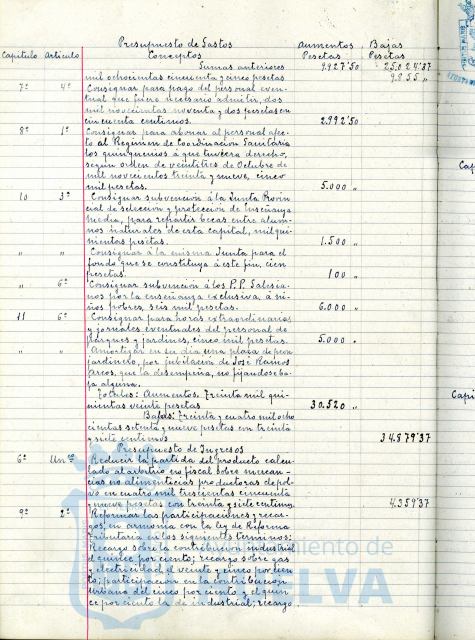 Presupuesto de Gastos Aumentos Bajas
Capítulo Artículo Conceptos Pesetas Pesetas
Sumas anteriores 9.927'50 25.024'37
mil ochocientas cincuenta y cinco pesetas 9.855 "
7º 4º Consignar para pago del personal even-
tual que fuere necesario admitir, dos
mil novecientas noventa y dos pesetas con
cincuenta centimos. 2.992'50
8º 1º Consignar para abonar al personal afec-
to al Regimen de Coordinación Sanitaria
los quinquenios á que tuviera derecho,
según orden de veintitres de Octubre de
mil novecientos treinta y nueve, cinco
mil pesetas. 5.000 "
10 3º Consignar subvención á la Junta Provin-
cial de selección y protección de Enseñanza
Media, para repartir becas entre alum-
nos naturales de esta capital, mil qui-
nientas pesetas. 1.500 "
" " Consignar á la misma Junta para el
fondo que se constituya á este fin, cien
pesetas. 100 "
" 6º Consignar subvención á los P.P. Salesia-
nos por la enseñanza exclusiva, a ni-
ños pobres, seis mil pesetas. 6.000 "
11 6º Consignar para horas extraordinarias
y jornales eventuales del personal de
parques y jardines, cinco mil pesetas. 5.000 "
" " Amortizar en su dia una plaza de peon
jardinero, por jubilación de José Ramos
Arcos, que la desempeña, no fijandose ba-
ja alguna.
Totales: Aumentos. Treinta mil qui-
nientas veinte pesetas 30.520 "
Bajas: Treinta y cuatro mil ocho
cientas setenta y nueve pesetas con treinta
y siete centimos 34.879'37
Presupuesto de Ingresos
6º Unico Reducir la partida del producto calcu-
lado al arbitrio no fiscal sobre mercan-
cias no alimenticias productoras de pol-
vo en cuatro mil trescientas cincuenta
y nueve pesetas con treinta y siete centimos 4.359'37
9º 2º Reformar las participaciones y recar-
gos, en armonia con la ley de Reforma
tributaria en los siguientes terminos:
Recargo sobre la contribucion industrial
el quince por ciento; recargo sobre gas
y electricidad, el veinte y cinco por cien
to; participacion en la contribucion
urbana del cinco por ciento y el quin-
ce por ciento la de industrial; recargo
Capi
Capi